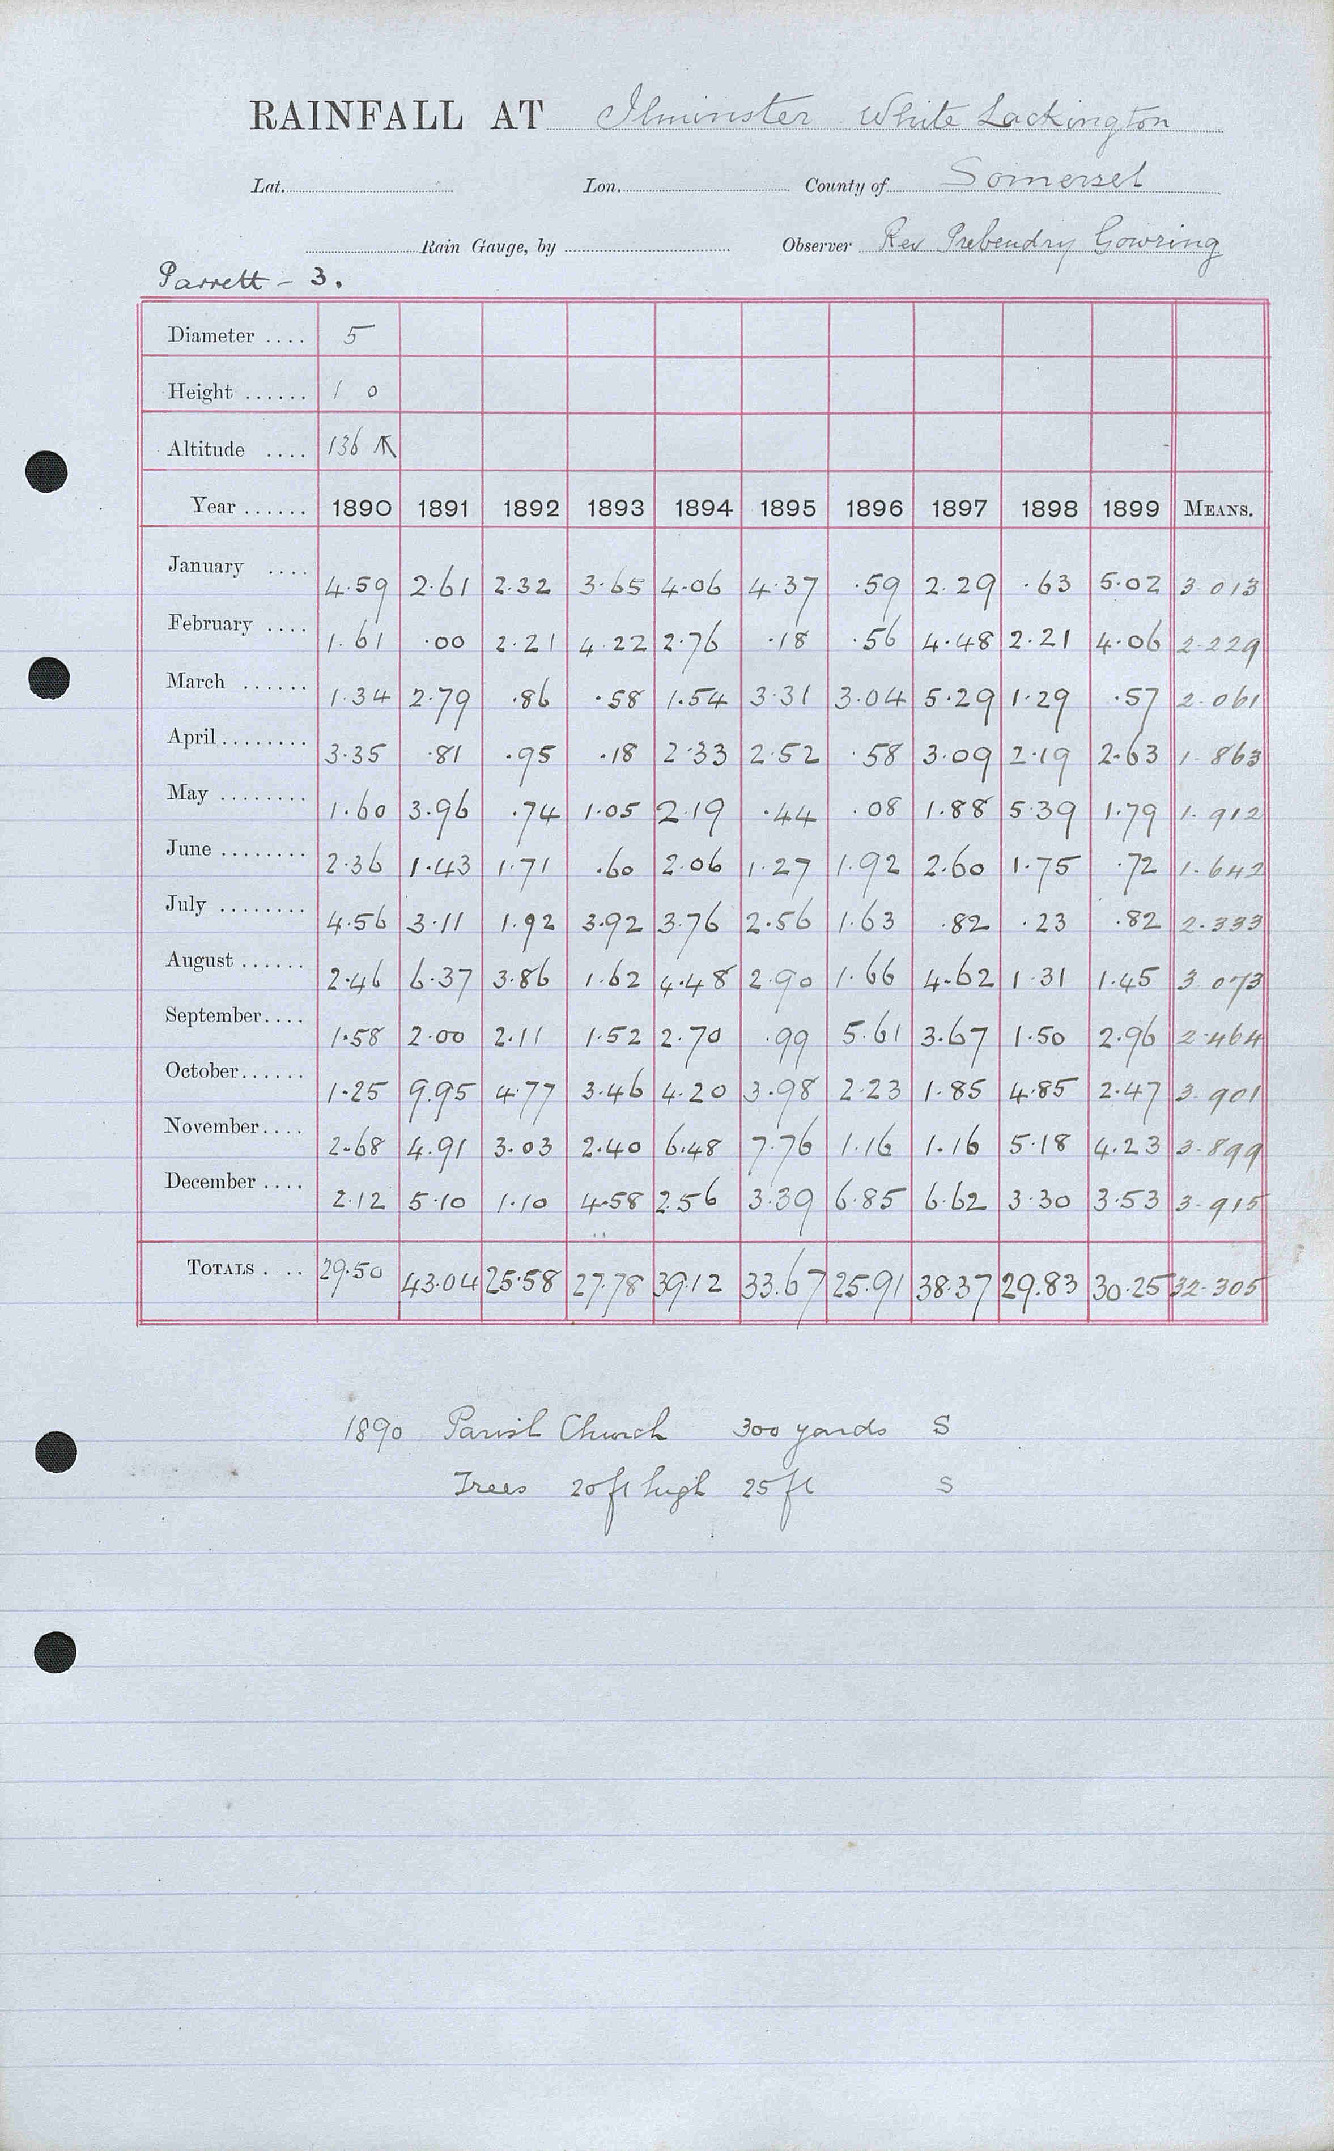 RAINFALL AT Ilminster White Lackington
Lat. Lon. County of Somerset
Rain Gauge, by Observer Rev Prebendry Gowring
Parrett - 3.
Diameter .... 5
Height ...... 1 0
Altitude .... 136
Year ...... 1890 1891 1892 1893 1894 1895 1896 1897 1898 1899 MEANS.
January .... 4.59 2.61 2.32 3.65 4.06 4.37 .59 2.29 .63 5.02 3.013
February .... 1.61 .00 2.21 4.22 2.76 .18 .56 4.48 2.21 4.06 2.229
March ...... 1.34 2.79 .86 .58 1.54 3.31 3.04 5.29 1.29 .57 2.061
April ........ 3.35 .81 .95 .18 2.33 2.52 .58 3.09 2.19 2.63 1.863
May ........ 1.60 3.96 .74 1.05 2.19 .44 .08 1.88 5.39 1.79 1.912
June ........ 2.36 1.43 1.71 .60 2.06 1.27 1.92 2.60 1.75 .72 1.642
July ........ 4.56 3.11 1.92 3.92 3.76 2.56 1.63 .82 .23 .82 2.333
August ...... 2.46 6.37 3.86 1.62 4.48 2.90 1.66 4.62 1.31 1.45 3.073
September.... 1.58 2.00 2.11 1.52 2.70 .99 5.61 3.67 1.50 2.96 2.464
October...... 1.25 9.95 4.77 3.46 4.20 3.98 2.23 1.85 4.85 2.47 3.901
November.... 2.68 4.91 3.03 2.40 6.48 7.76 1.16 1.16 5.18 4.23 3.899
December .... 2.12 5.10 1.10 4.58 2.56 3.39 6.85 6.62 3.30 3.53 3.915
TOTALS . .. 29.50 43.04 25.58 27.78 39.12 33.67 25.91 38.37 29.83 30.25 32.305
1890 Parish Church 300 yards S
Trees 20 ft high 25 ft S